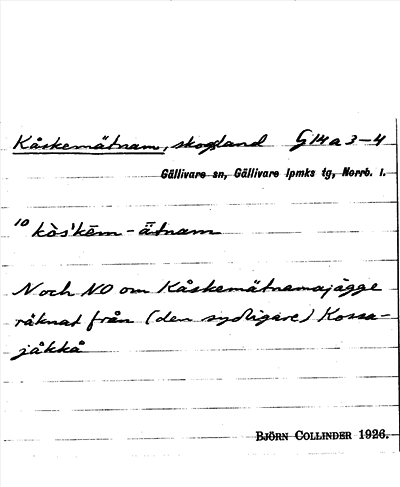 Kåskemätnam, skogsland G14a3-4
Gällivare sn, Gällivare lpmks tg, Norrb. l.
10 kòs'kēm-ätnam
N och NO om Kåskemätnamajägge
räknat från (den sydligare) Kossa-
jåkkå
BJÖRN COLLINDER 1926.